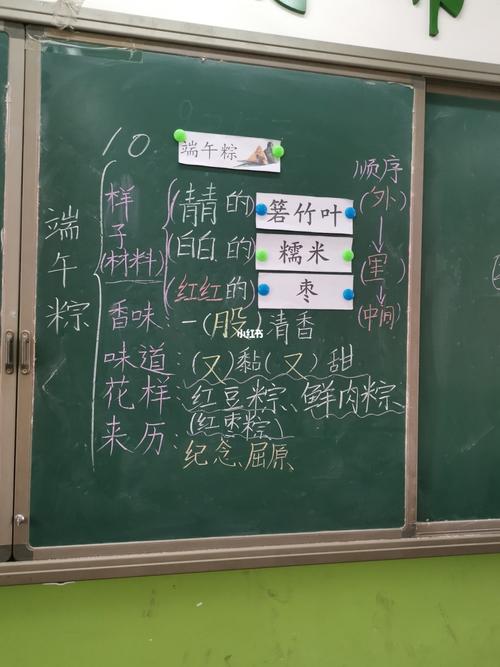 10 端午粽
端午粽
样子(材料)
(青青的)箬竹叶
(白白的)糯米
(红红的)枣
香味:一(股)清香
味道:(又)黏(又)甜
花样:红豆粽、鲜肉粽
(红枣粽)
来历:纪念屈原
顺序
(外)
(里)
(中间)
小红书